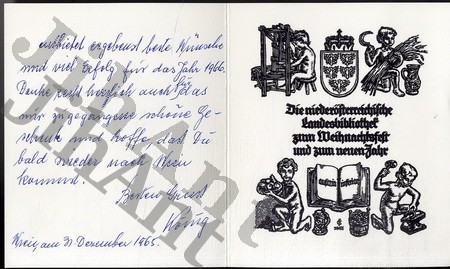 entbietet ergebenst beste Wünsche
und viel Erfolg für das Jahr 1966.
Danke recht herzlich auch für das
mir zugegangene schöne Ge-
schenk und hoffe, dass Du
bald wieder nach Wien
kommst.
Besten Gruss
König
Wien, am 31 Dezember 1965.
Die niederösterreichische
Landesbibliothek
zum Weihnachtsfest
und zum neuen Jahr